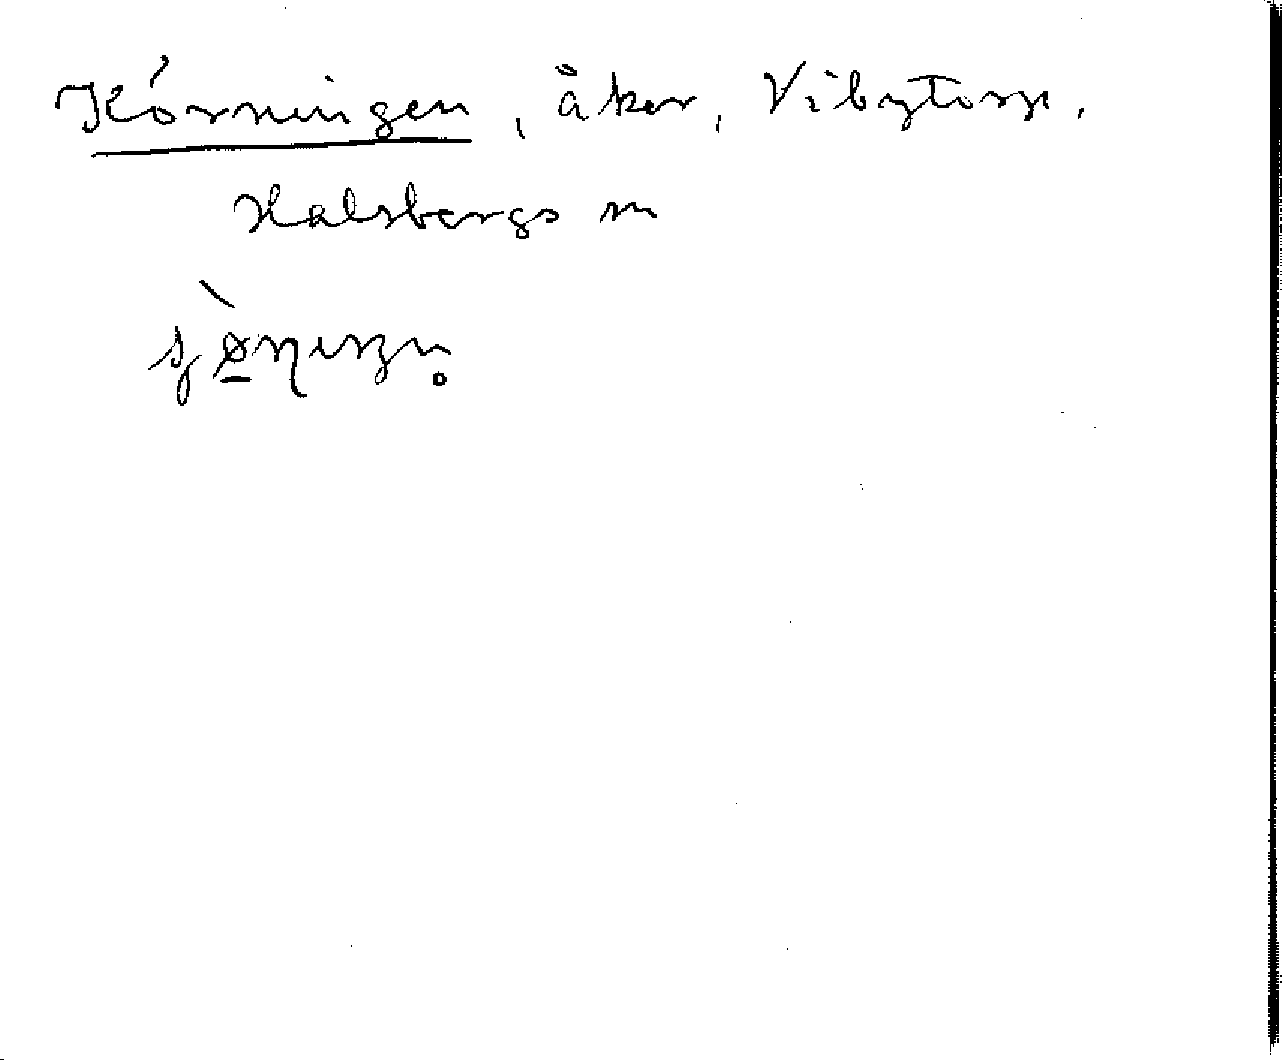 Körningen, åker, Vibytorp,
Halsbergs sn